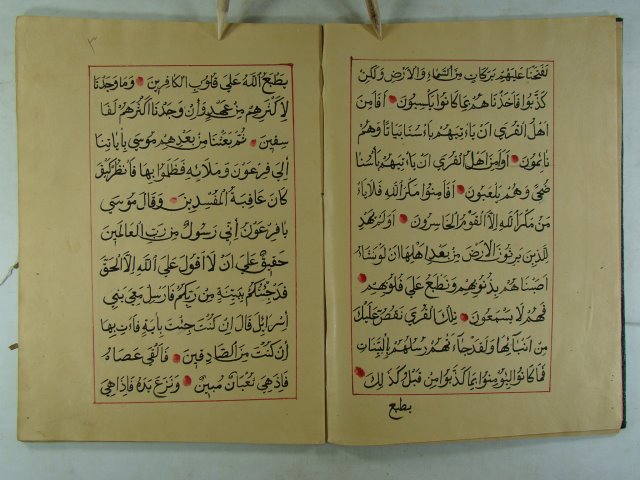 لفتحنا عليهم بركات من السماء والارض ولكن
كذبوا فاخذناهم بما كانوا يكسبون افامن
اهل القرى ان ياتيهم باسنا بياتا وهم
نائمون اوامن اهل القرى ان ياتيهم باسنا
ضحى وهم يلعبون افامنوا مكر الله فلا يا
من مكر الله الا القوم الخاسرون اولم يهد
للذين يرثون الارض من بعد اهلها ان لو نشاء
اصبناهم بذنوبهم ونطبع على قلوبهم
فهم لا يسمعون تلك القرى نقص عليك
من انبائها ولقد جاءتهم رسلهم بالبينات
فما كانوا ليؤمنوا بما كذبوا من قبل كذلك
يطبع
٣
يطبع الله على قلوب الكافرين وما وجدنا
لاكثرهم من عهد وان وجدنا اكثرهم لفا
سقين ثم بعثنا من بعدهم موسى باياتنا
الى فرعون وملائه فظلموا بها فانظر كيف
كان عاقبة المفسدين وقال موسى
يا فرعون اني رسول من رب العالمين
حقيق على ان لا اقول على الله الا الحق
قد جئتكم ببينة من ربكم فارسل معي بني
اسرائيل قال ان كنت جئت باية فات بها
ان كنت من الصادقين فالقى عصاه
فاذا هي ثعبان مبين ونزع يده فاذا هي